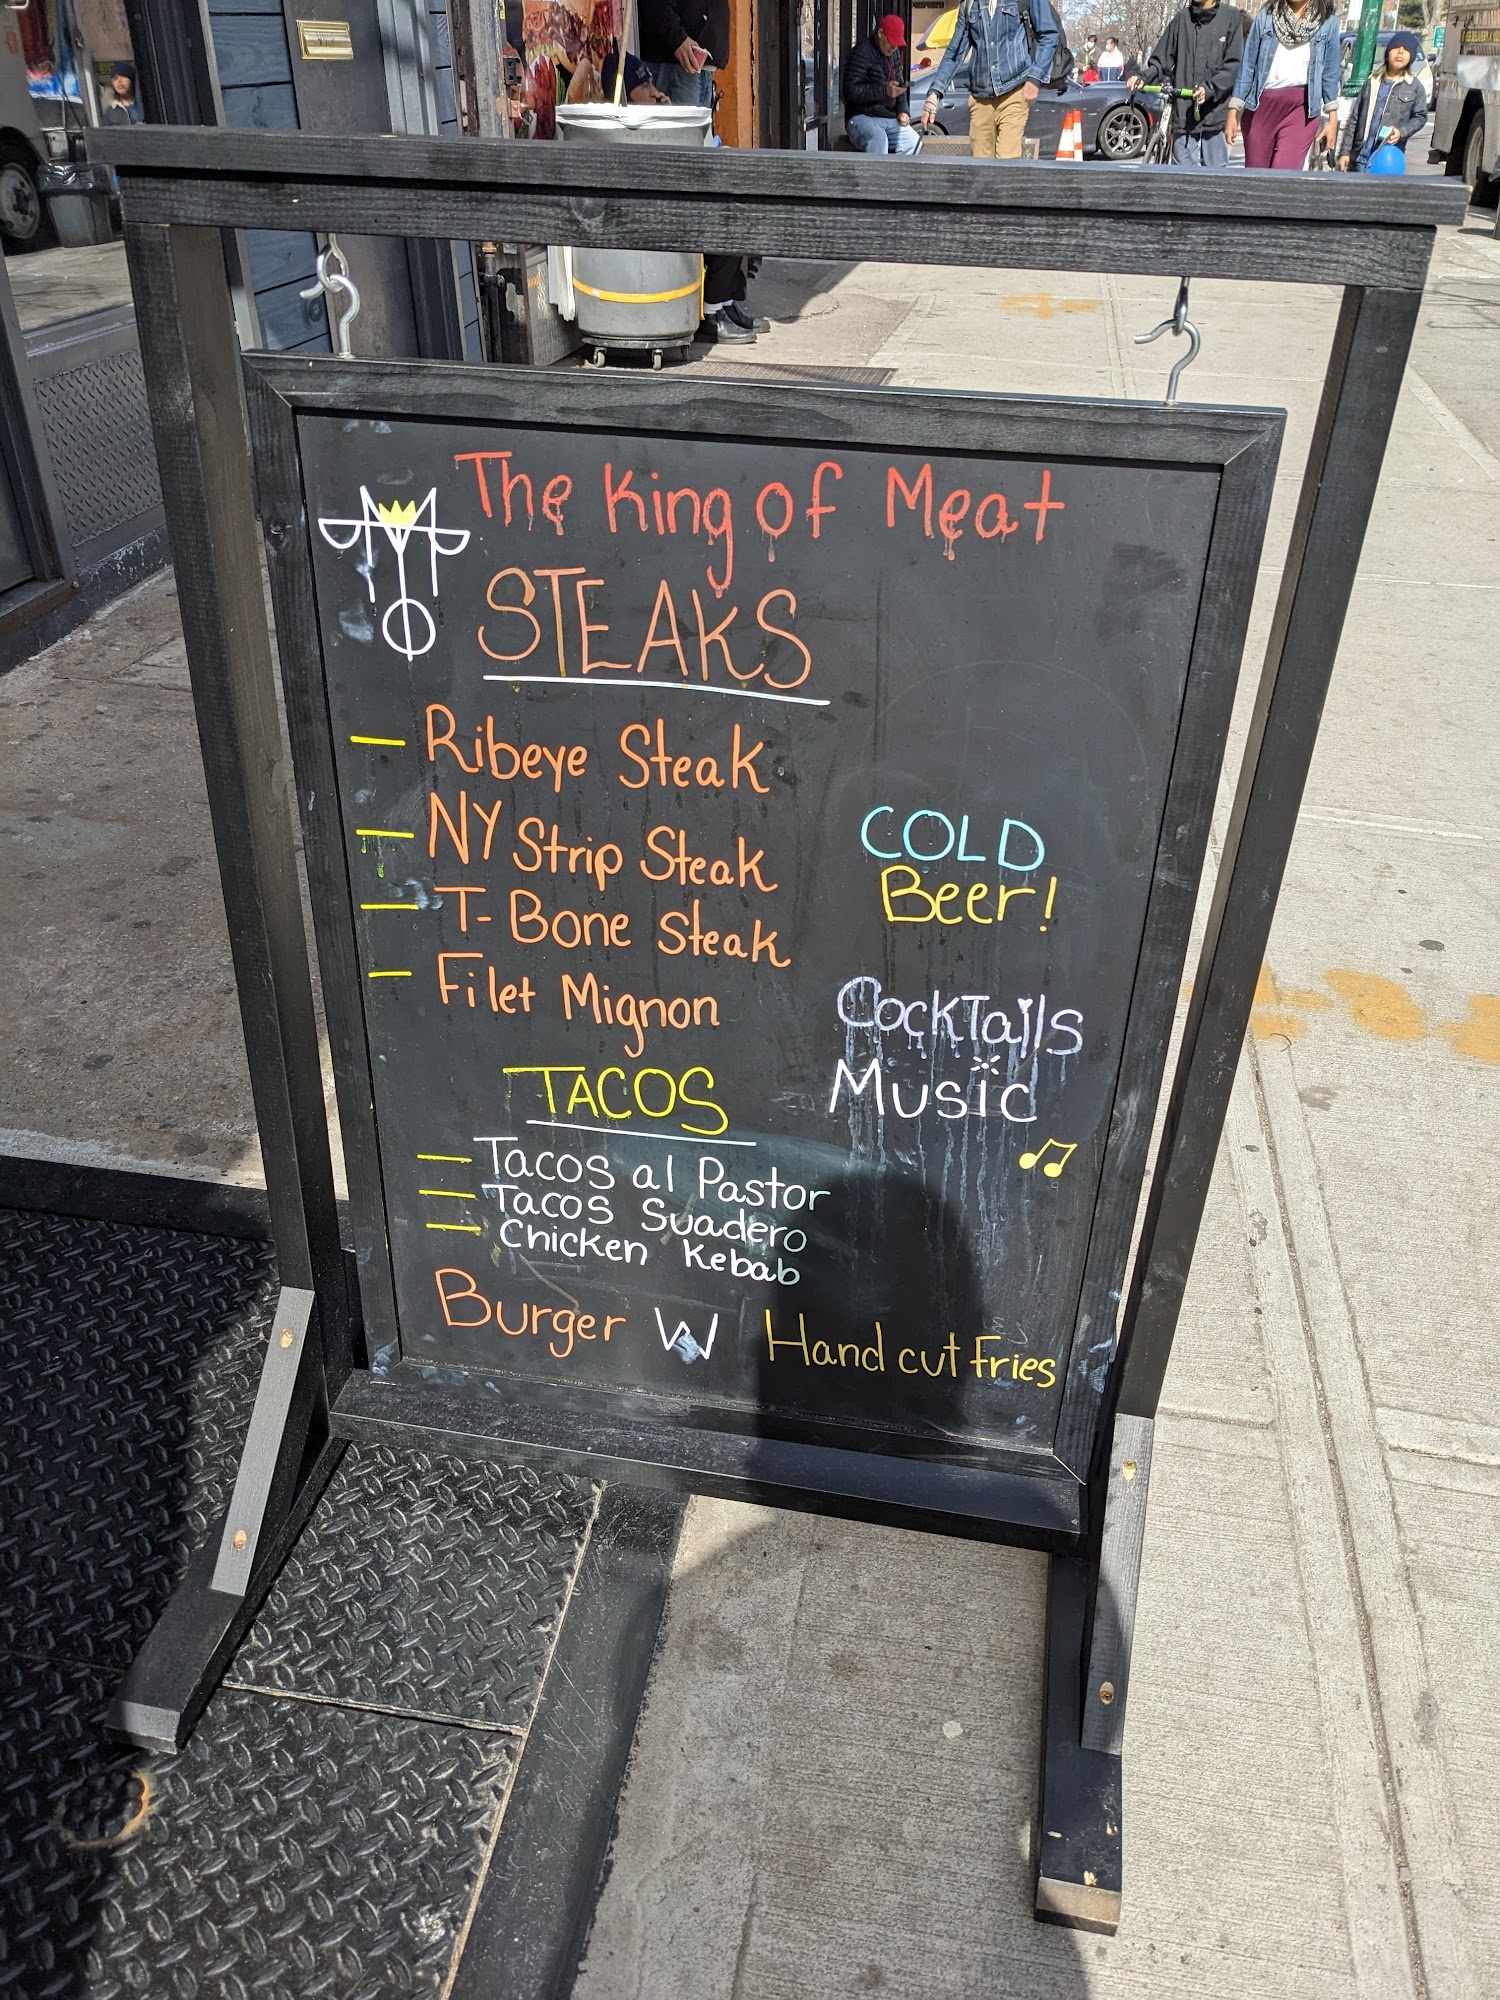 The King of Meat
STEAKS
- Ribeye Steak
- NY Strip Steak
- T-Bone Steak
- Filet Mignon
COLD
Beer!
Cocktails
Music
TACOS
- Tacos al Pastor
- Tacos Suadero
- Chicken Kebab
Burger W Hand cut fries